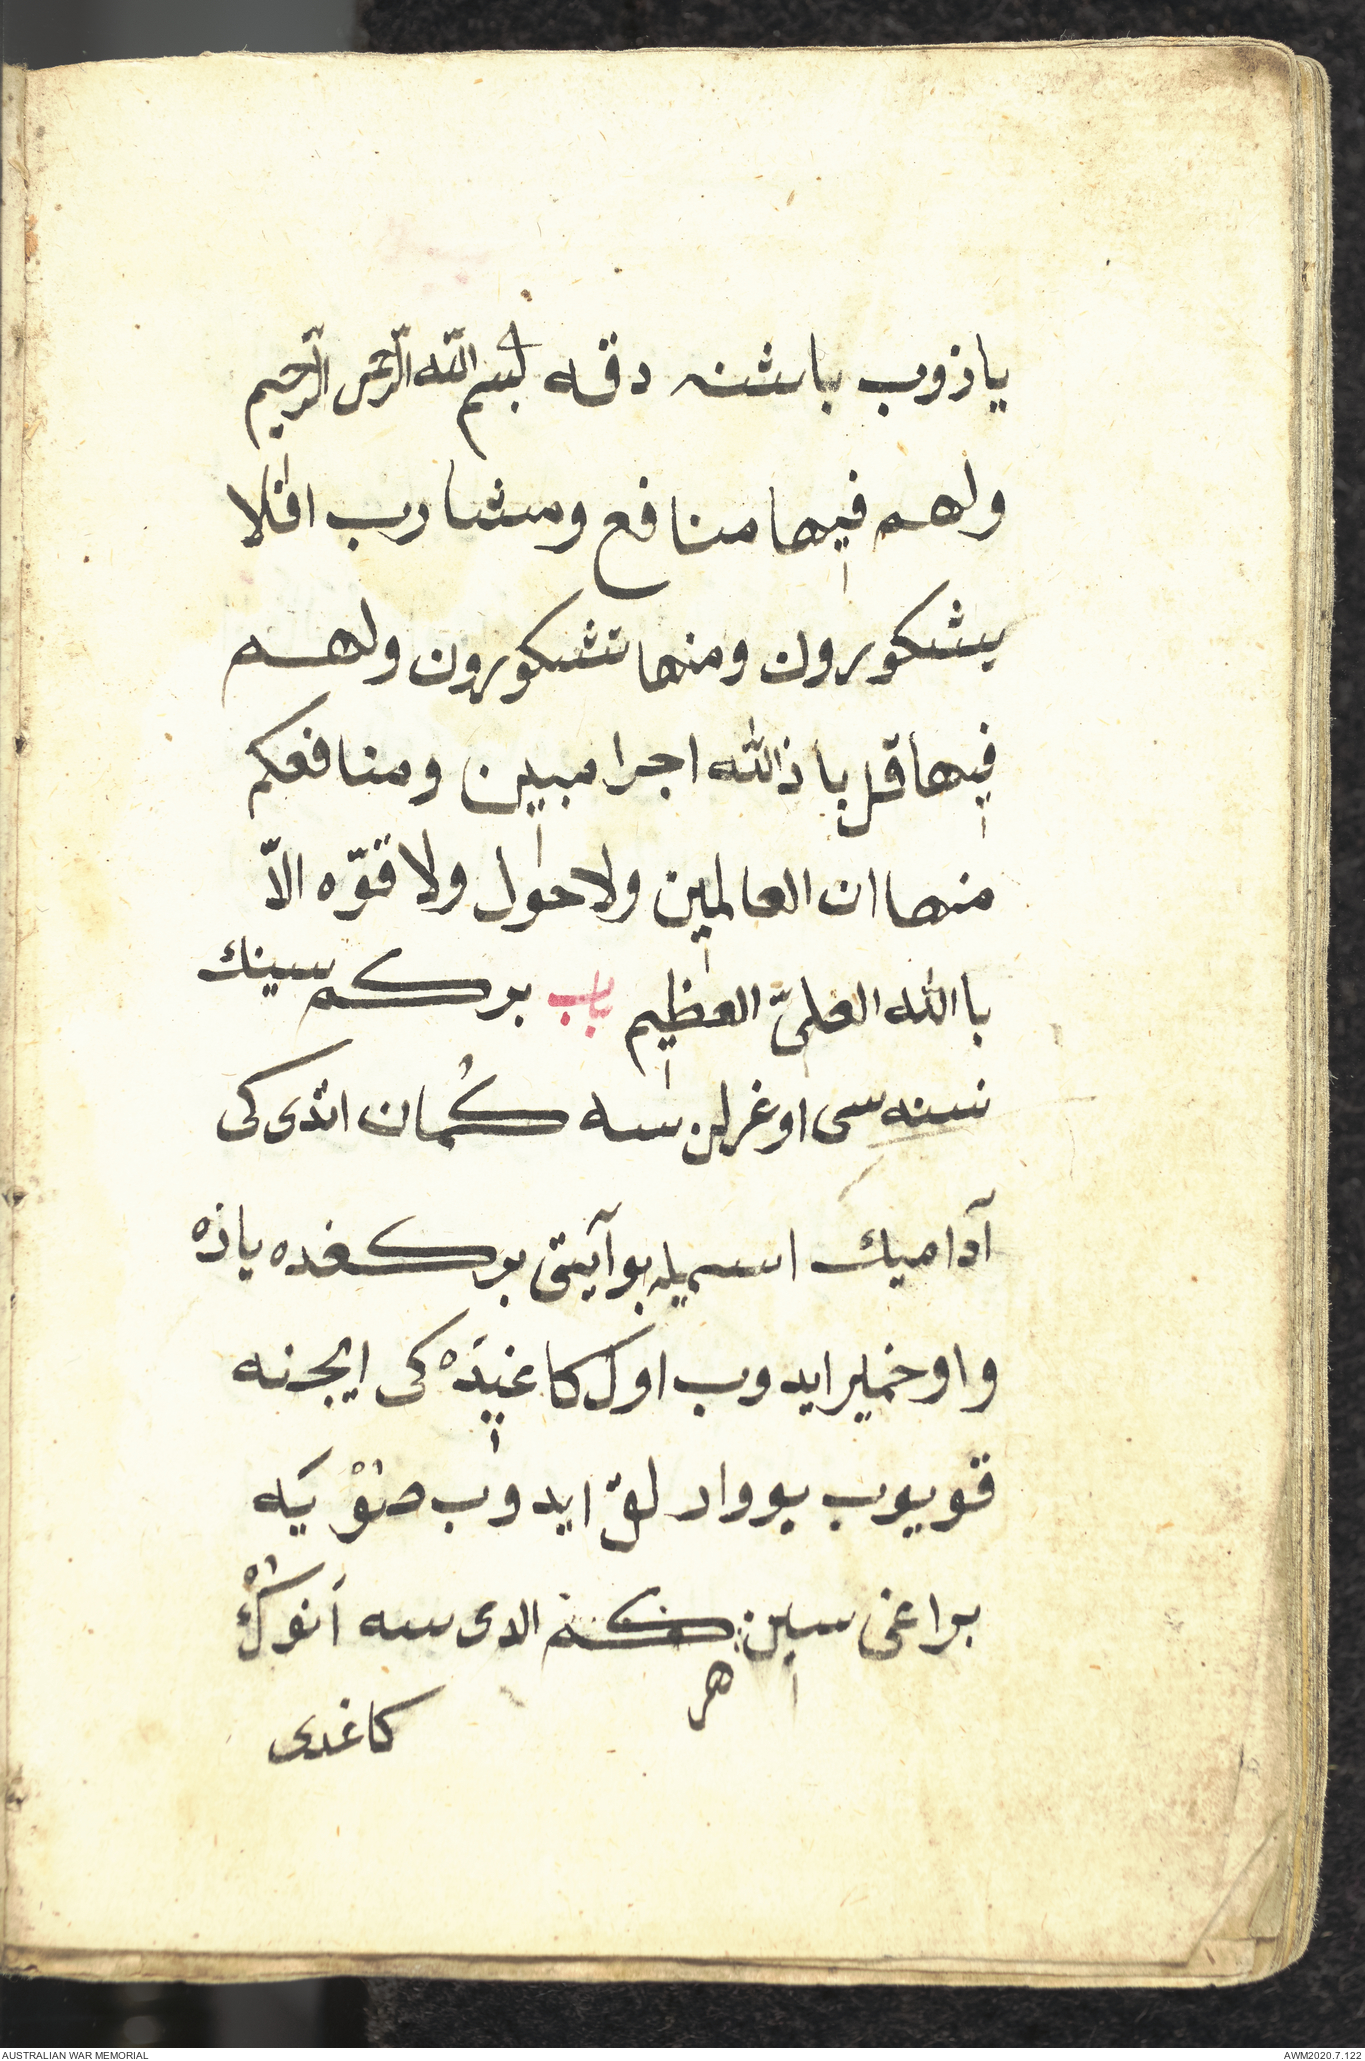 ياذوب باشنه دقه بسم الله الرحمن الرحيم
ولهم فيها منافع ومشارب افلا
يشكورون ومنها تشكورون ولهم
فيها قل باذالله اجرا مبين ومنافعكم
منها ان العالمين ولا حول ولا قوّه الاّ
باالله العلىّ العظيم باب بر كمسينك
نسنه سى اوغرلنسه كُمان اتدى كى
آداميك اسميله بو آيتى بر كغده يازه
واو خمير ايدوب اول كاغيدَه كى ايچنه
قويوب يووارلق ايدوب صُوْيَه
براغى سين هر كم الدى سه اَنُوكْ
كاغدى
AUSTRALIAN WAR MEMORIAL
AWM2020.7.122